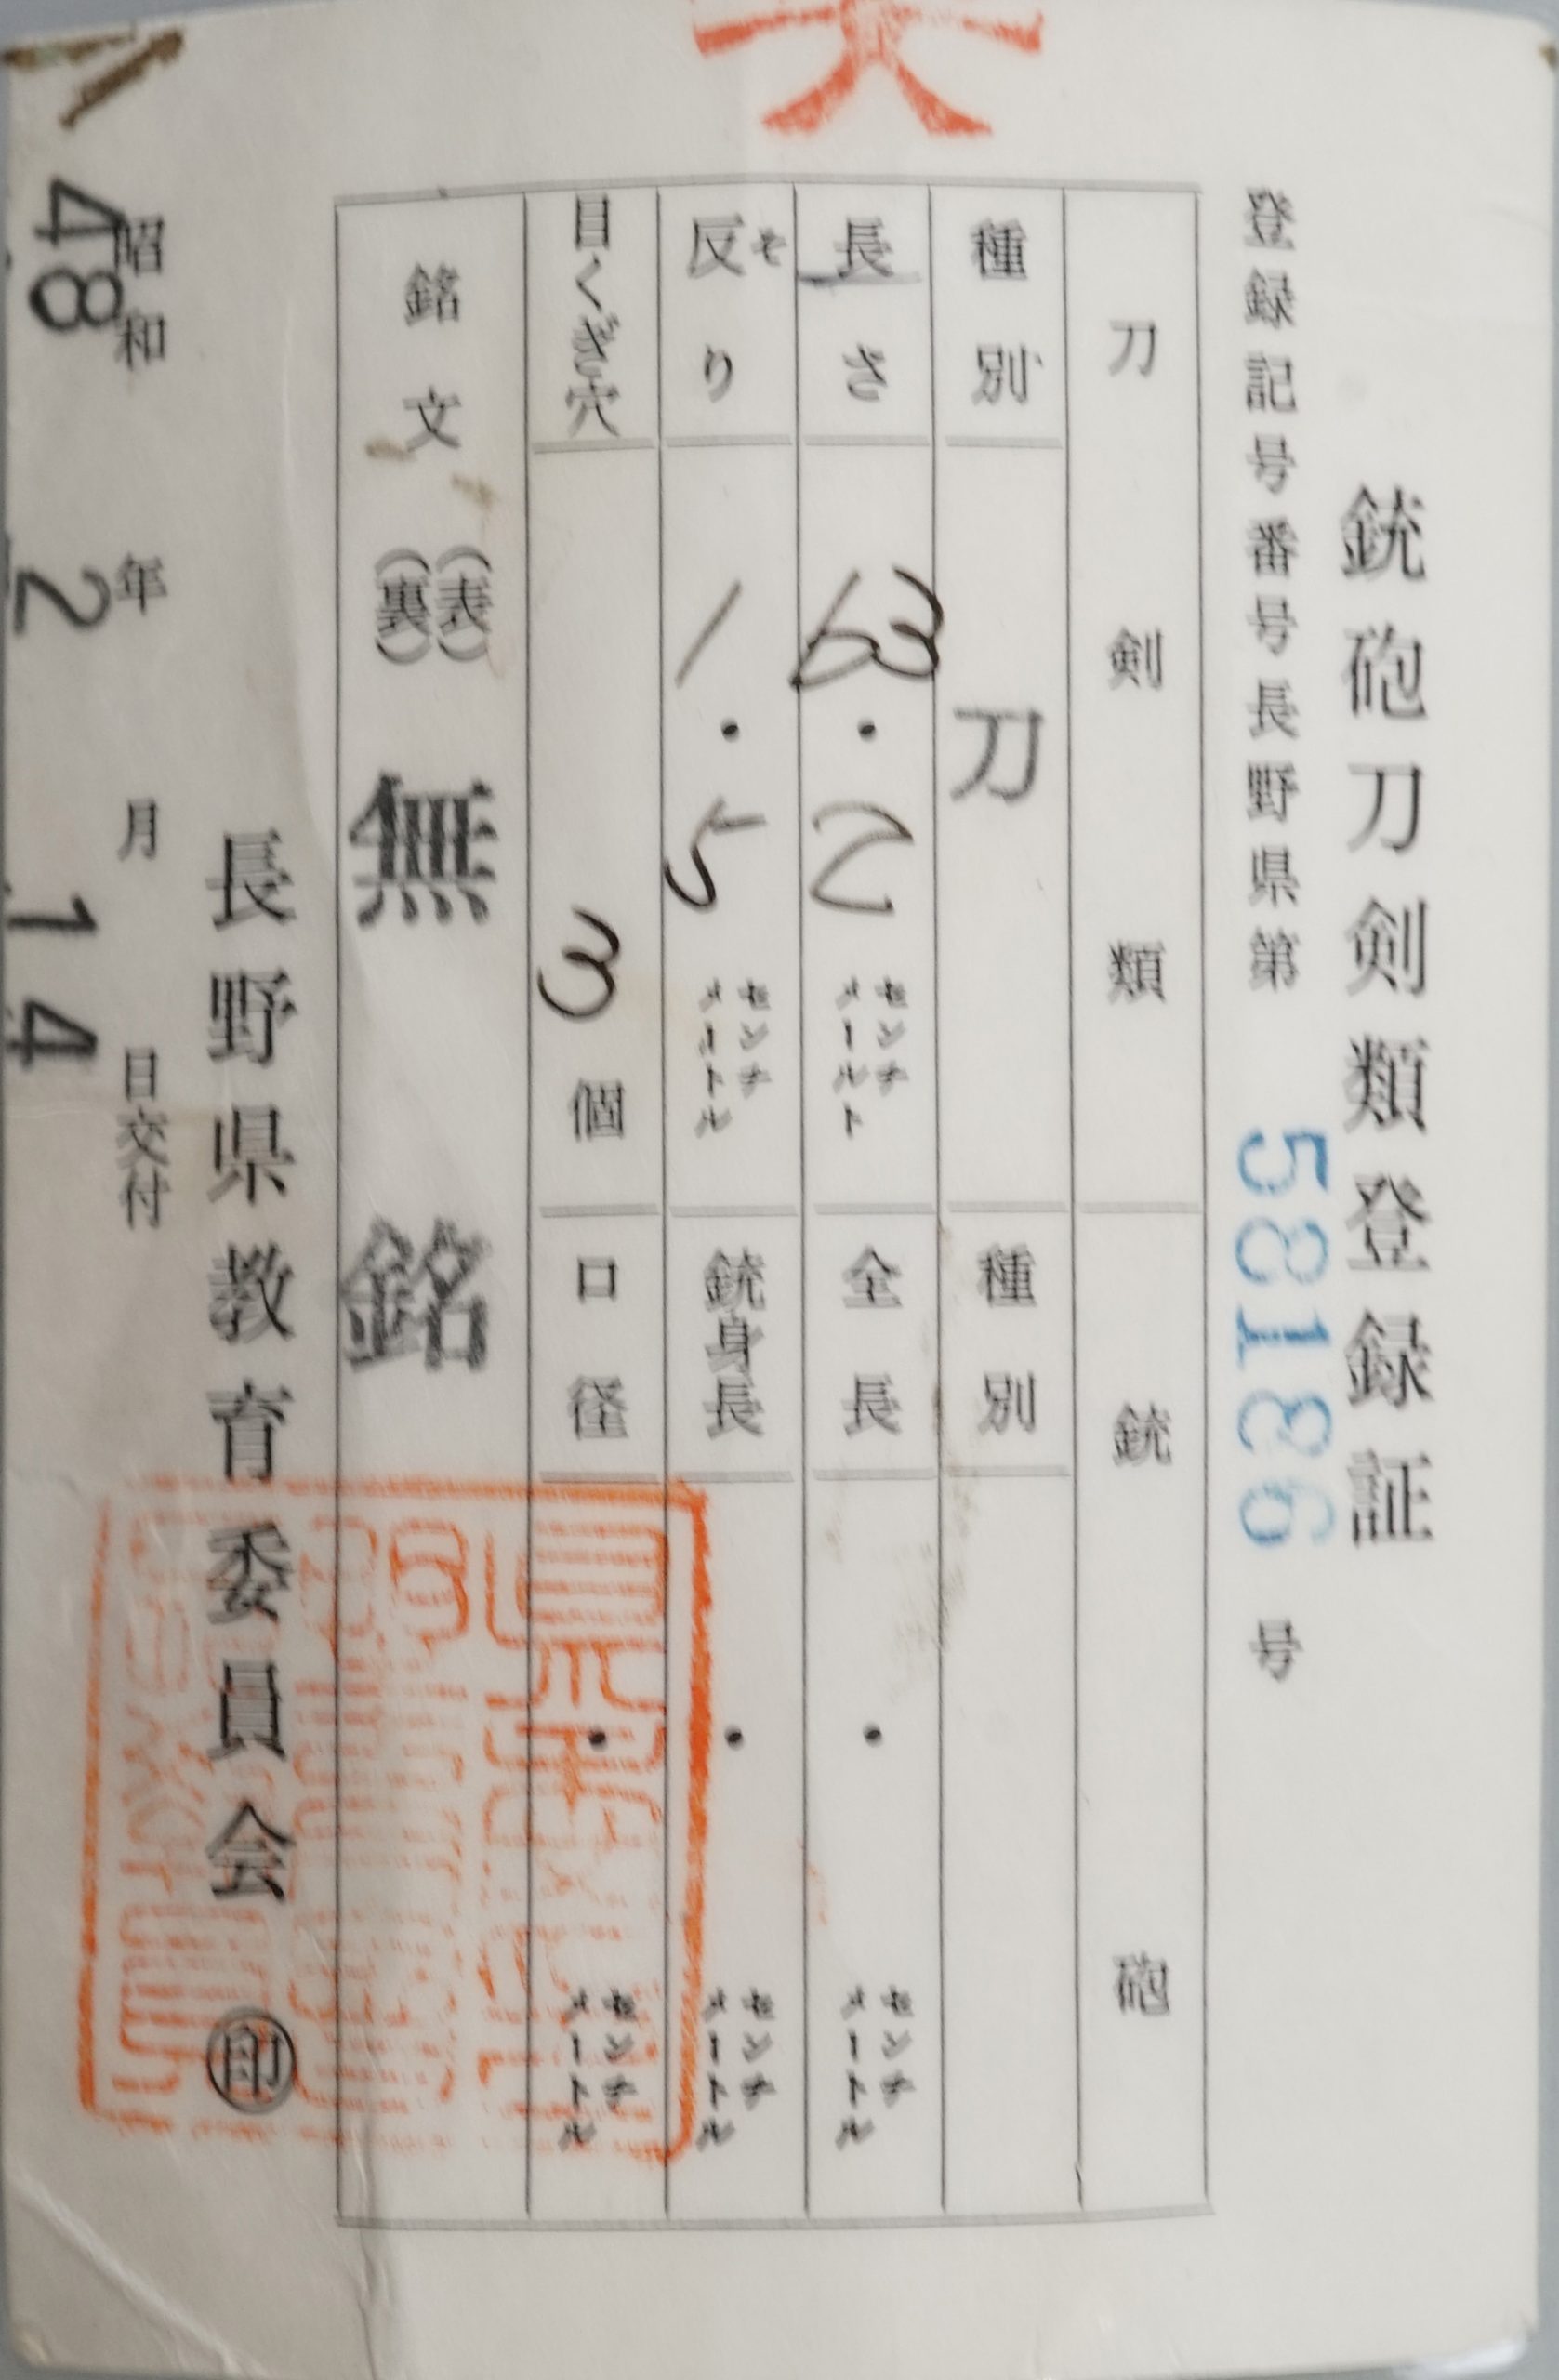 銃砲刀剣類登録証
登録記号番号長野県第 58186 号
刀剣類 銃砲
種別 刀 種別
長さ 63.2 センチメールト 全長 ・ センチメートル
反り そ 1.5 センチメートル 銃身長 ・ センチメートル
目くぎ穴 3個 口径 ・ センチメートル
銘文 (表) 無銘
(裏)
長野県教育委員会 ㊞
昭和 年 月 日交付
48 2 14